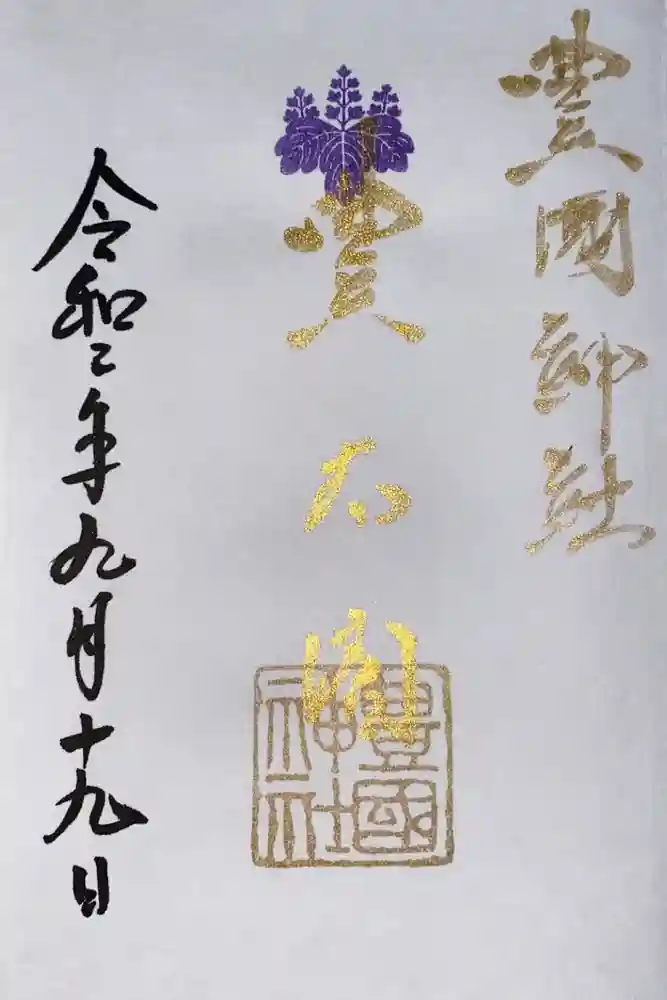 豊國神社
豊太閤
令和二年九月十九日
豊國
神社